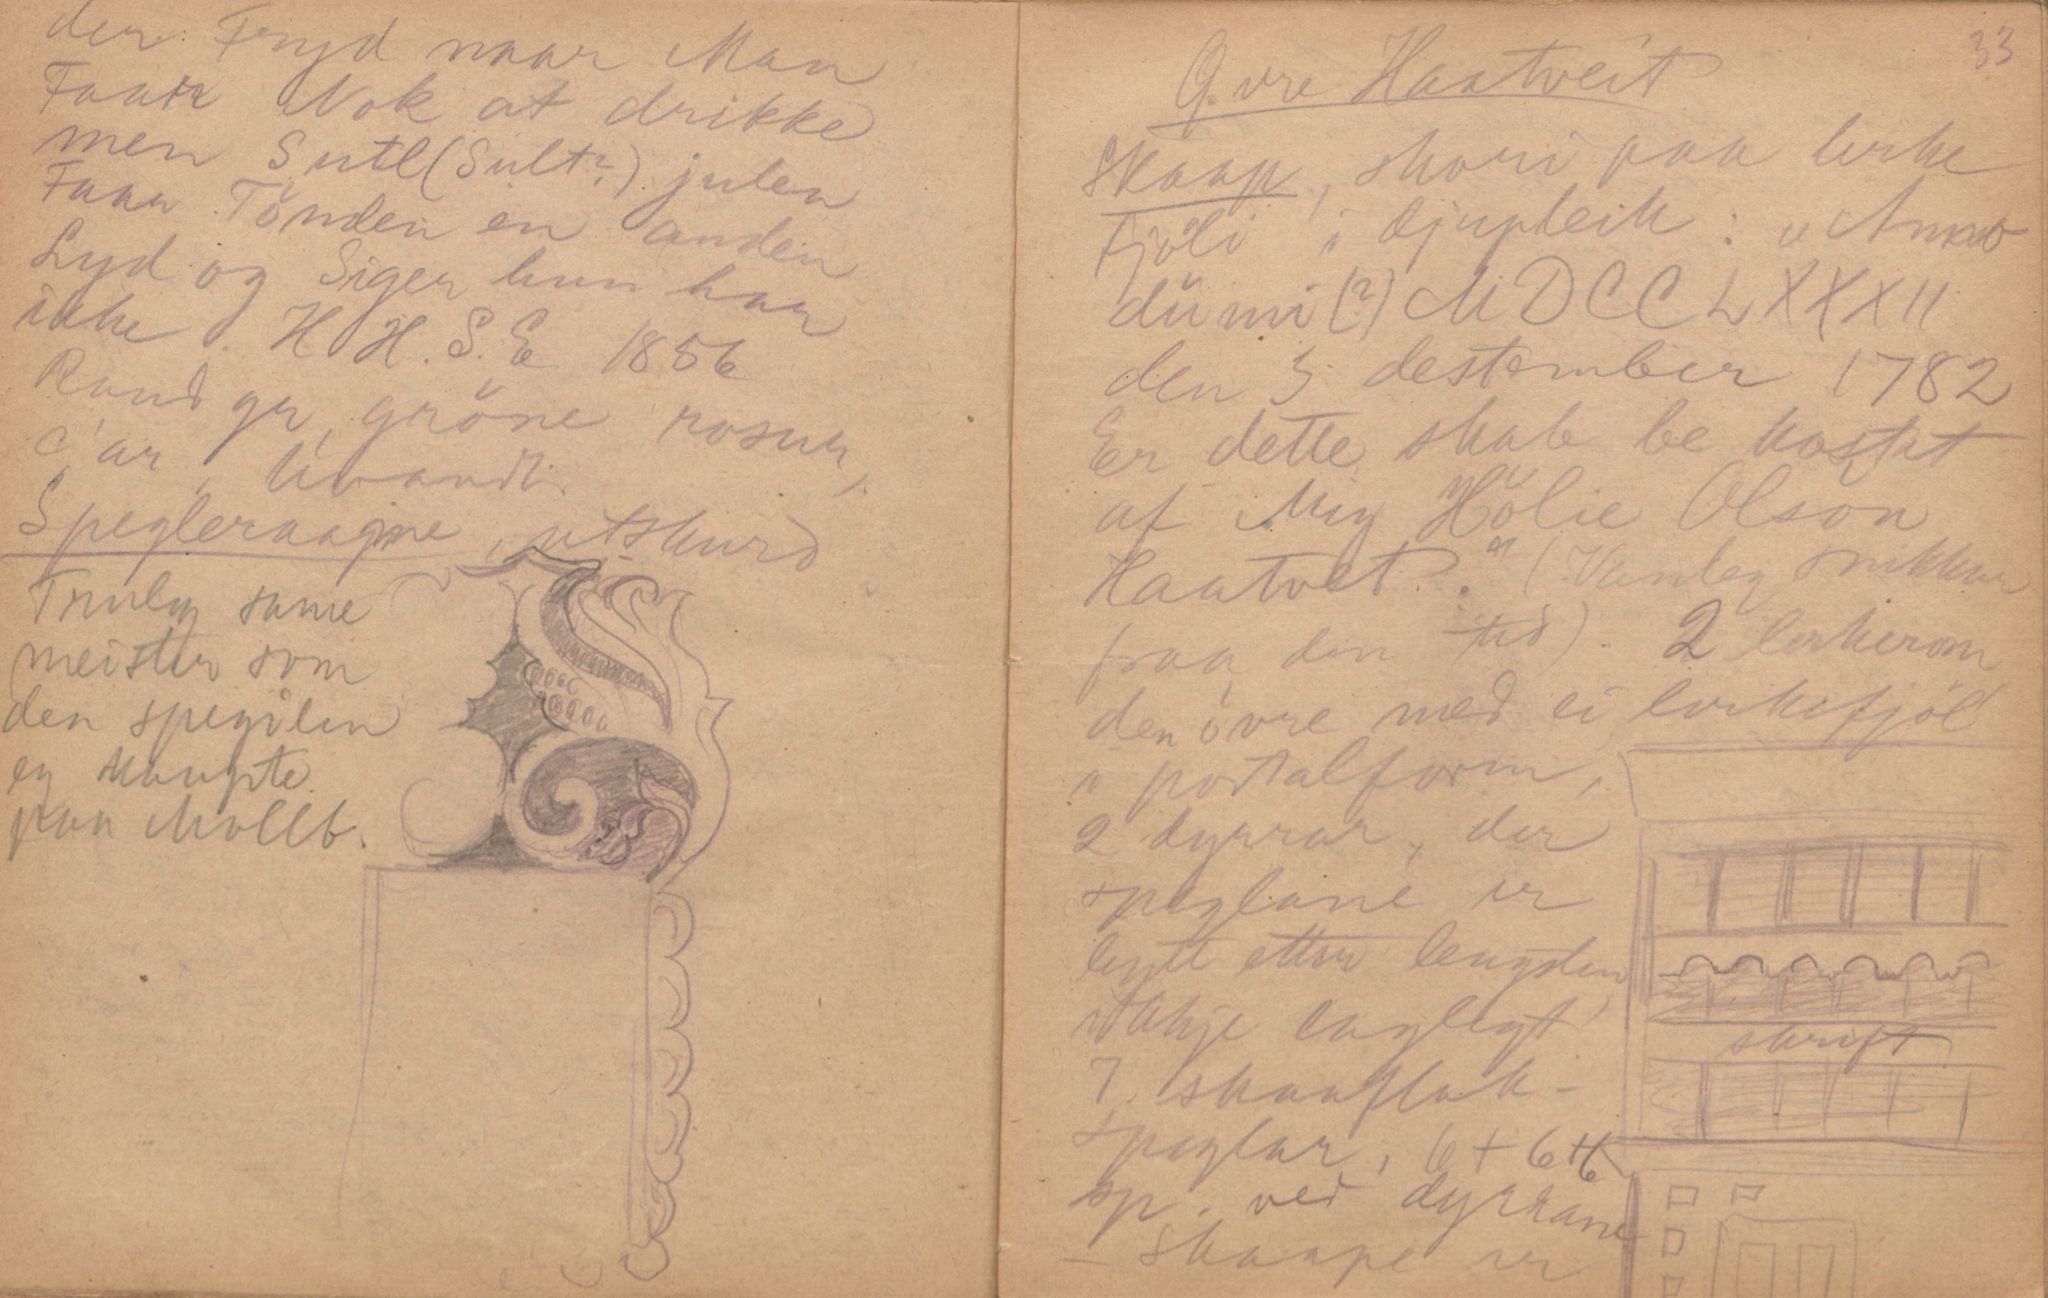 der Fryd naar Man
Faar Nok at drikke
men Sutl (Sult?) julen
Faaer Tönden en anden
Lyd og Siger hun har
ikke. H H. S. E 1856
Rand gr, gröne rosur,
Spegleraagme, utskurd
Truleg same
meister som
den spegilen
eg kaupte
paa Mollb.
33
Övre Haatveit
Skaap, skori paa lerke
fjöli i djupleik: "Anno
dümi (?) MDCCLXXXII
den 3 destember 1782
Er dette skab be kostet
af Mig Hölie Olson
Haatvet." (Vanleg snikkar
fraa den tid). 2 lerkerom
den övre med ei lerkefjöl
i portalform,
2 dyrrar, der
speglane er
legte etter lengden
ikkje laglegt
7 skaaflak-
speglar, 6 + 6 + 6
sp. ved dyrrane
- Skaape er
skrift